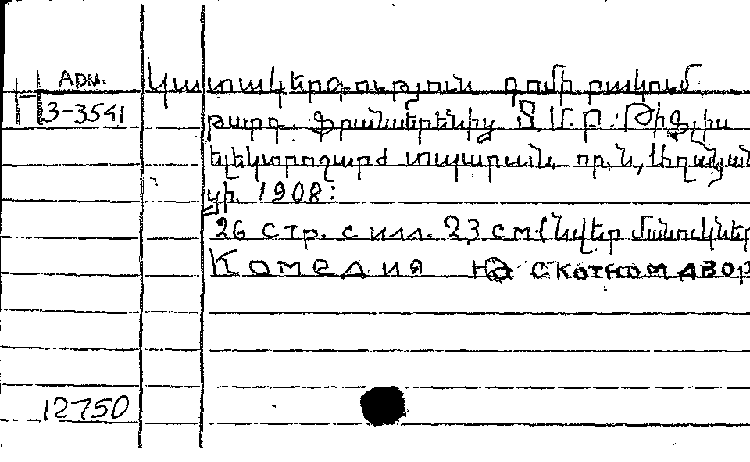 Арм.
3-3541
Կատակերգություն գոմի բակում
թարգ. ֆրանսերենից Ց. Մ. Բ. Թիֆլիս
էլեկտրոշարժ տպարան օր. Ն. Աղանյան
ցի 1908:
26 стр. с илл. 23 см (Նվեր մանուկներ
Комедия на скотном двор
12750